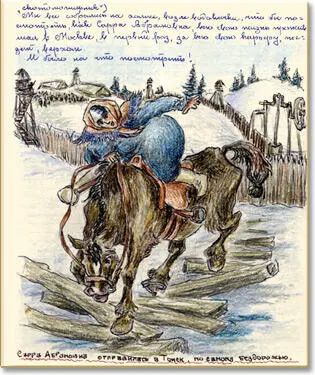 скотопромышленник")
Мы все собрались на холме, возле водокачки, что бы по-
смотреть как Сарра Абрамовна всю свою жизнь прожив
шая в Москве, в первый раз, за всю свою карьеру, поե
дет, верхом.
И было на что посмотреть!
Сарра Абрамовна отправилась в Томск, по самому бездорожью.